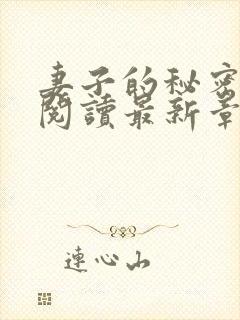 妻子的秘密
閱讀最新章
連心山